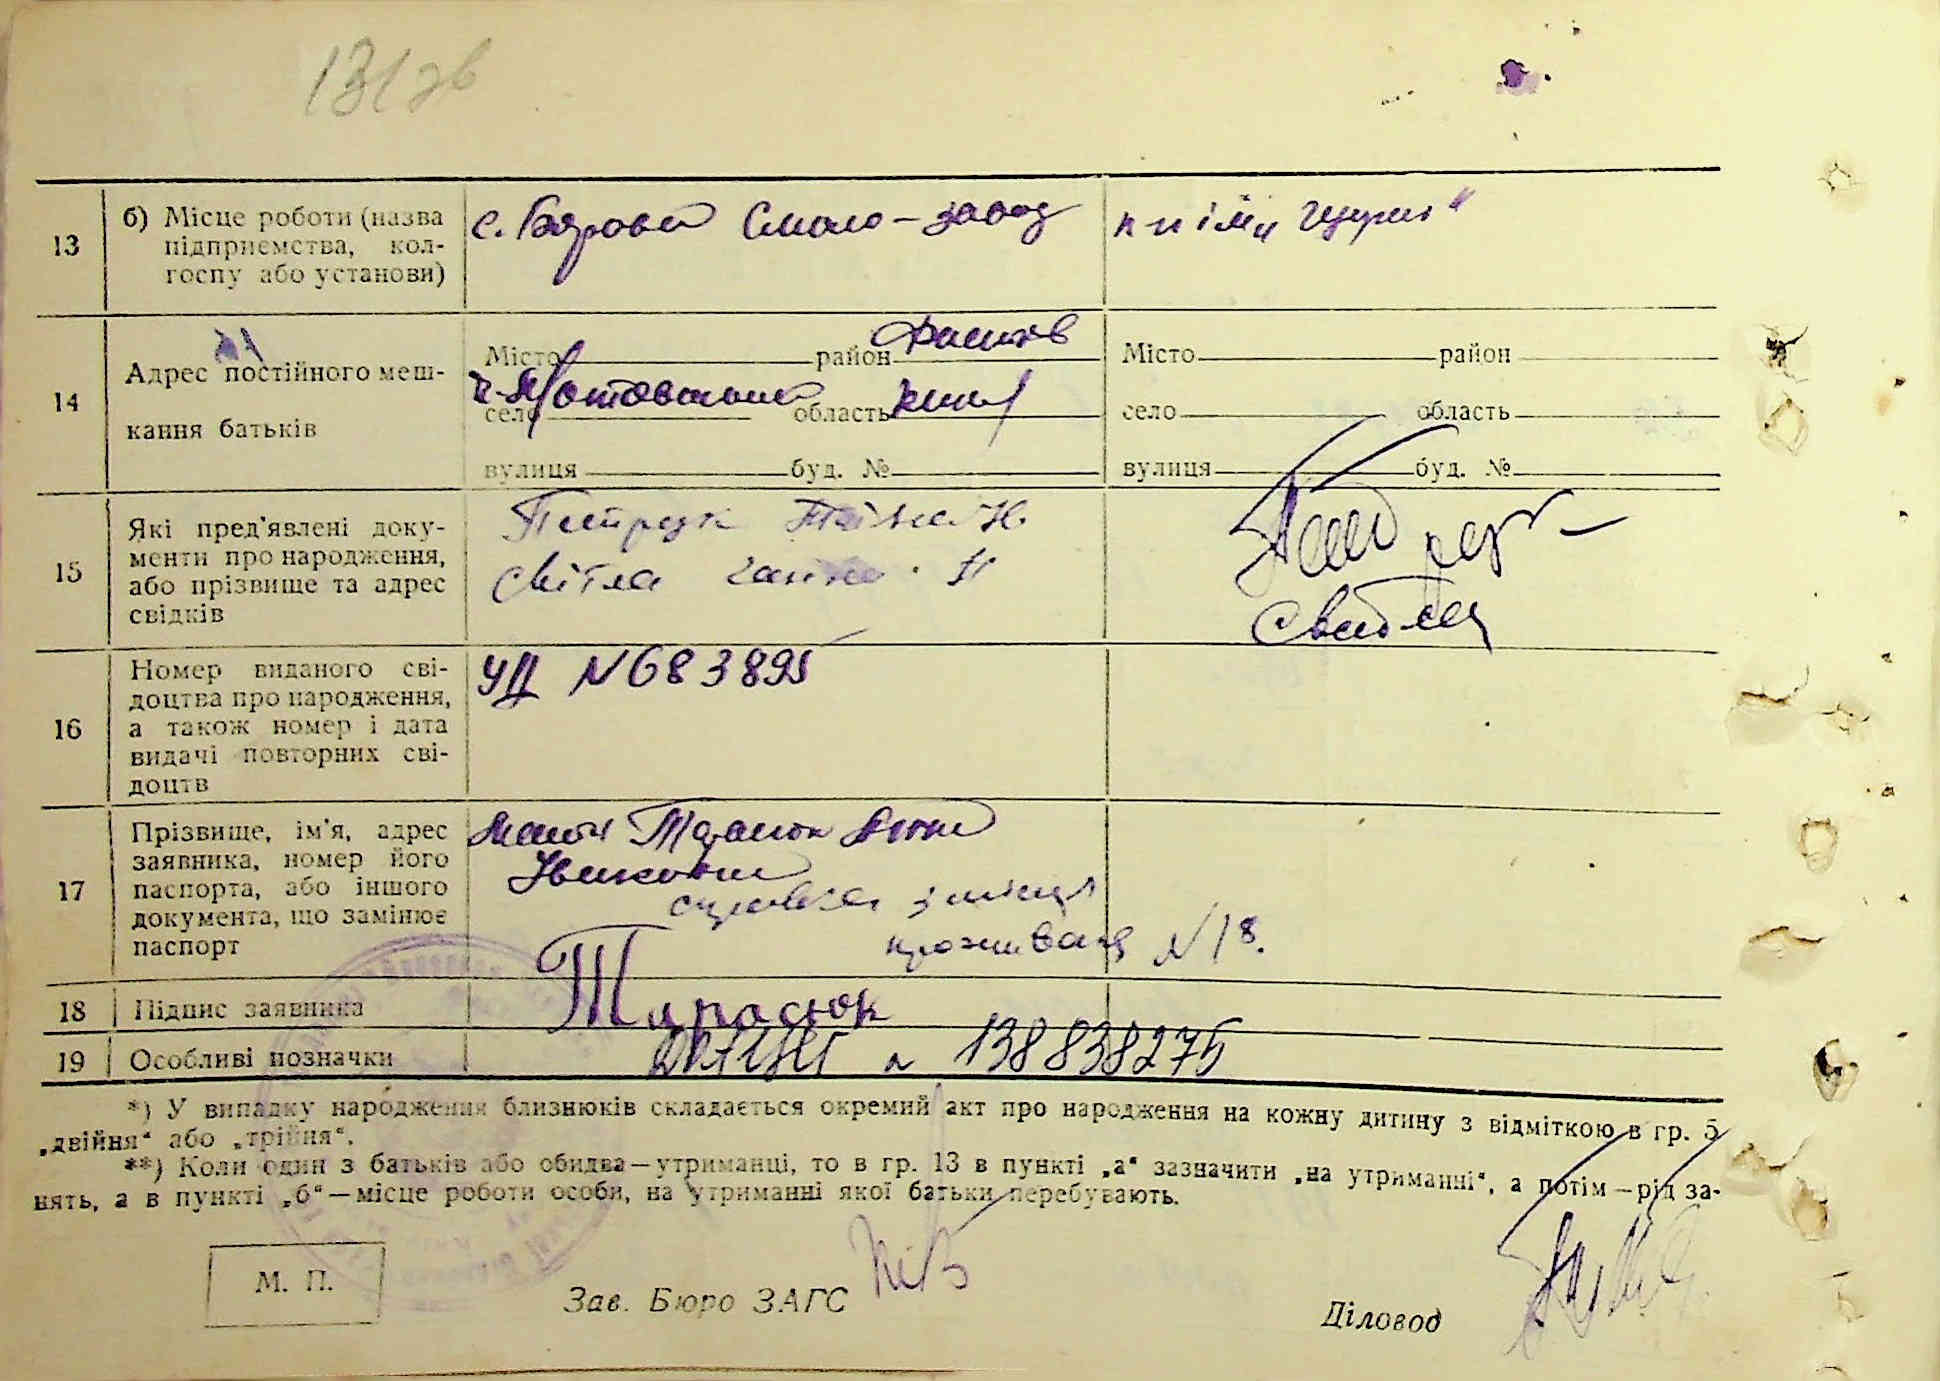 131 зв
13
б) Місце роботи (назва підприємства, колгоспу або установи)
с. Борова Смоло-завод
14
Адрес постійного мешкання батьків
Місто район
село область
вулиця буд. №
Місто район
село область
вулиця буд. №
15
Які пред'явлені документи про народження, або прізвище та адрес свідків
Петрук Н.
Світла Ганна Н
16
Номер виданого свідоцтва про народження, а також номер і дата видачі повторних свідоцтв
УД N 683895
17
Прізвище, ім'я, адрес заявника, номер його паспорта, або іншого документа, що замінює паспорт
Тарасюк
справка з місця
проживання N 18.
18
Підпис заявника
Тарасюк
19
Особливі позначки
138838275
*) У випадку народження близнюків складається окремий акт про народження на кожну дитину з відміткою в гр. 5
„двійня“ або „трійня“.
**) Коли один з батьків або обидва—утриманці, то в гр. 13 в пункті „а“ зазначити „на утриманні“, а потім—рід за-
нять, а в пункті „б“—місце роботи особи, на утриманні якої батьки перебувають.
М. П.
Зав. Бюро ЗАГС
Діловод